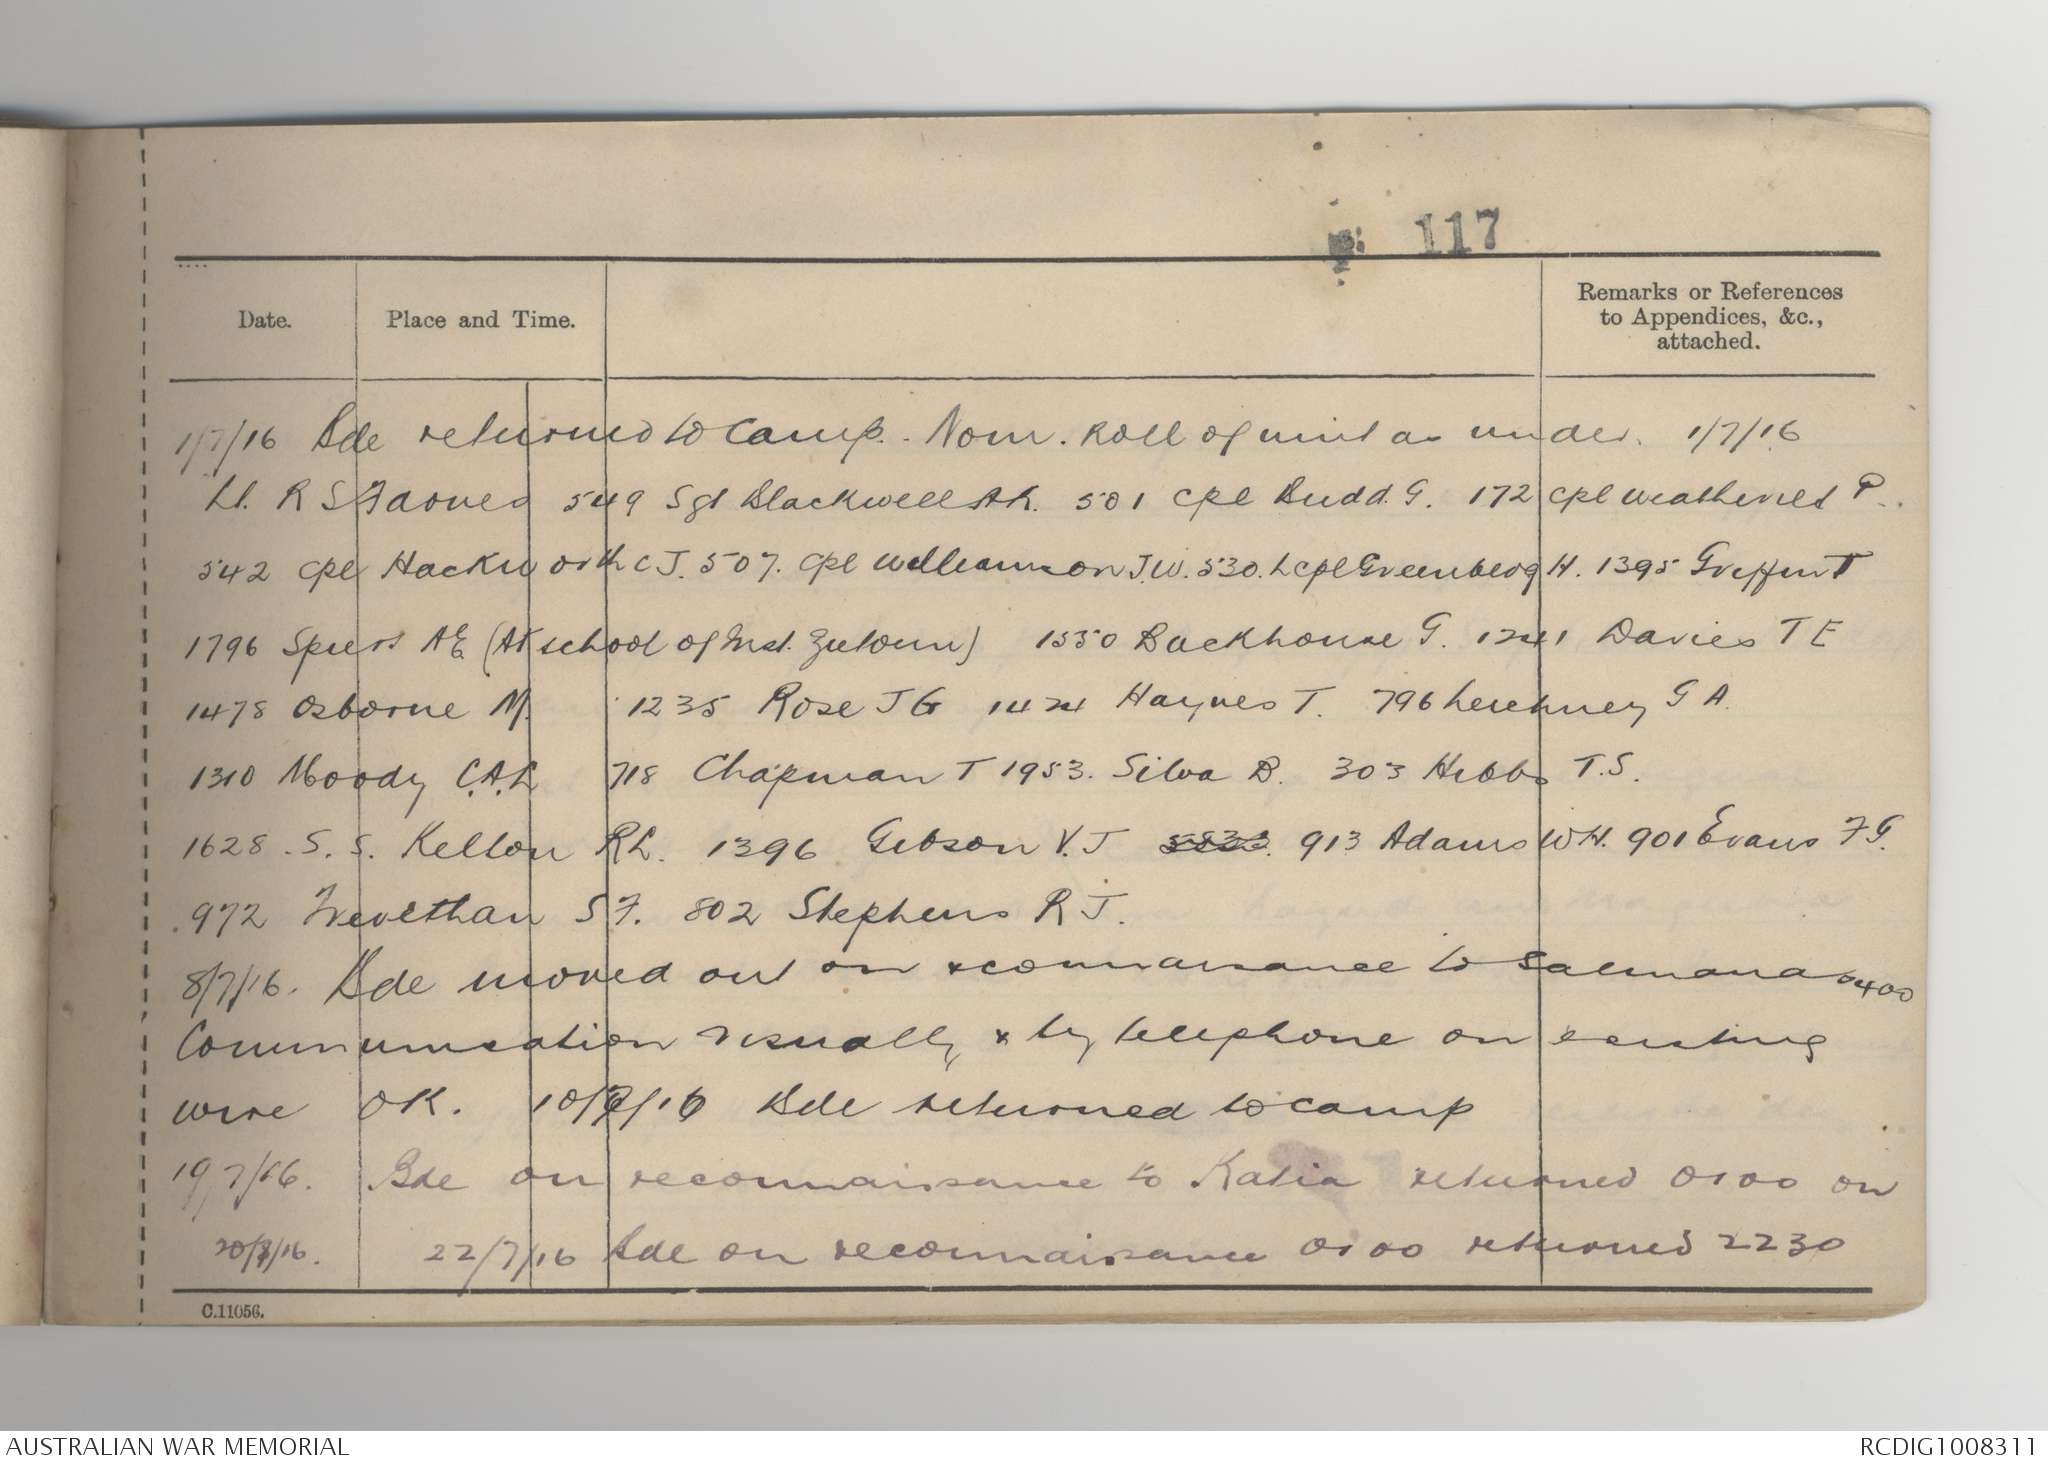 117
Date.
Place and Time.
Remarks or References
to Appendices, &c.,
attached.
1/7/16 Bde returned to Camp. Nom. Roll of unit as under. 1/7/16
Lt. R S 549 Sgt Blackwell A R. 501 Cpl Budd. G. 172 Cpl P.
542 Cpl Hackworth C J. 507. Cpl Williamson J.W. 530. L Cpl Greenberg H. 1395 Griffin T
1796 A E (At school of Inst. Zeitoun) 1550 Backhouse G. 1241 Davies T E
1478 Osborne M. 1235 Rose J G 1424 Haynes T. 796 G A.
1310 Moody C.A.L 718 Chapman T 1953. Silva B. 303 Hibbs T.S.
1628 . S. S. Kelton R L. 1396 Gibson V. J 913 Adams W H. 901 Evans F G.
972 Trevethan S F. 802 Stephens R J.
8/7/16. Bde moved out on reconnaissance to Salmana 0400
Communication visually & by telephone on existing
wire OK. 10/7/16 Bde returned to camp
19/7/16. Bde on reconnaissance to Katia returned 0100 on
20/7/16. 22/7/16 Bde on reconnaissance 0100 returned 2230
C.11056.
AUSTRALIAN WAR MEMORIAL
RCDIG1008311